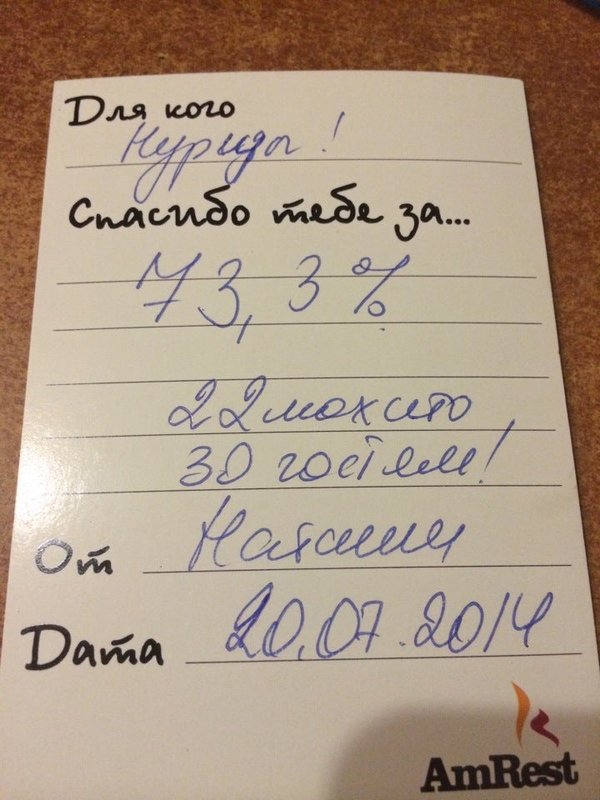 Для кого
Нуриды!
Спасибо тебе за...
73,3%
22 мохито
30 гостям!
От Наташи
Дата 20.07.2014
AmRest